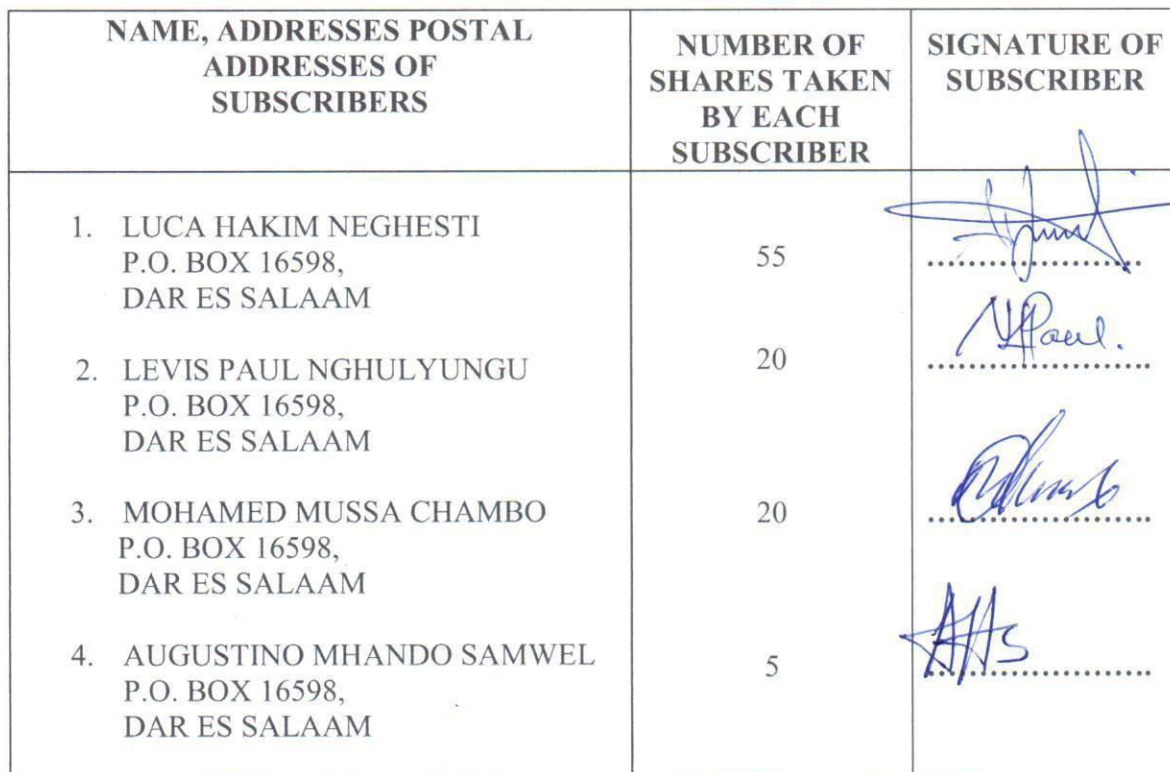 NAME, ADDRESSES POSTAL
ADDRESSES OF
SUBSCRIBERS
NUMBER OF
SHARES TAKEN
BY EACH
SUBSCRIBER
SIGNATURE OF
SUBSCRIBER
1. LUCA HAKIM NEGHESTI
P.O. BOX 16598,
DAR ES SALAAM
55
2. LEVIS PAUL NGHULYUNGU
P.O. BOX 16598,
DAR ES SALAAM
20
Paul.
3. MOHAMED MUSSA CHAMBO
P.O. BOX 16598,
DAR ES SALAAM
20
4. AUGUSTINO MHANDO SAMWEL
P.O. BOX 16598,
DAR ES SALAAM
5